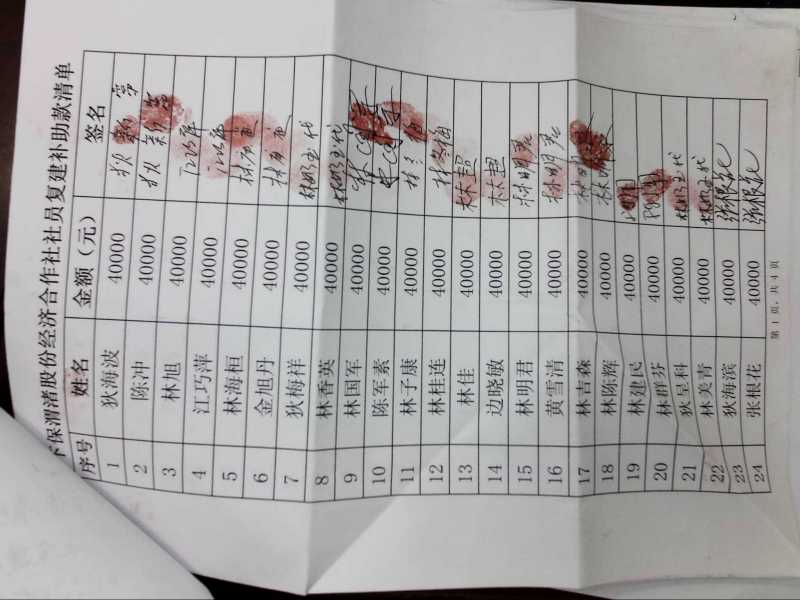 保渭渚股份经济合作社社员复建补助款清单
序号 姓名 金额（元） 签名
1 狄海波 40000
2 陈冲 40000
3 林旭 40000
4 江巧萍 40000
5 林海桓 40000
6 金旭丹 40000
7 狄梅祥 40000
8 林香英 40000
9 林国军 40000
10 陈军素 40000
11 林子康 40000
12 林桂连 40000
13 林佳 40000 林超
14 边晓敏 40000 林超
15 林明君 40000 林明君
16 黄雪清 40000 林明君
17 林吉森 40000
18 林陈辉 40000
19 林建民 40000
20 林群芬 40000
21 狄呈科 40000
22 林美青 40000
23 狄海滨 40000 张根花
24 张根花 40000 张根花
第 1 页，共 4 页